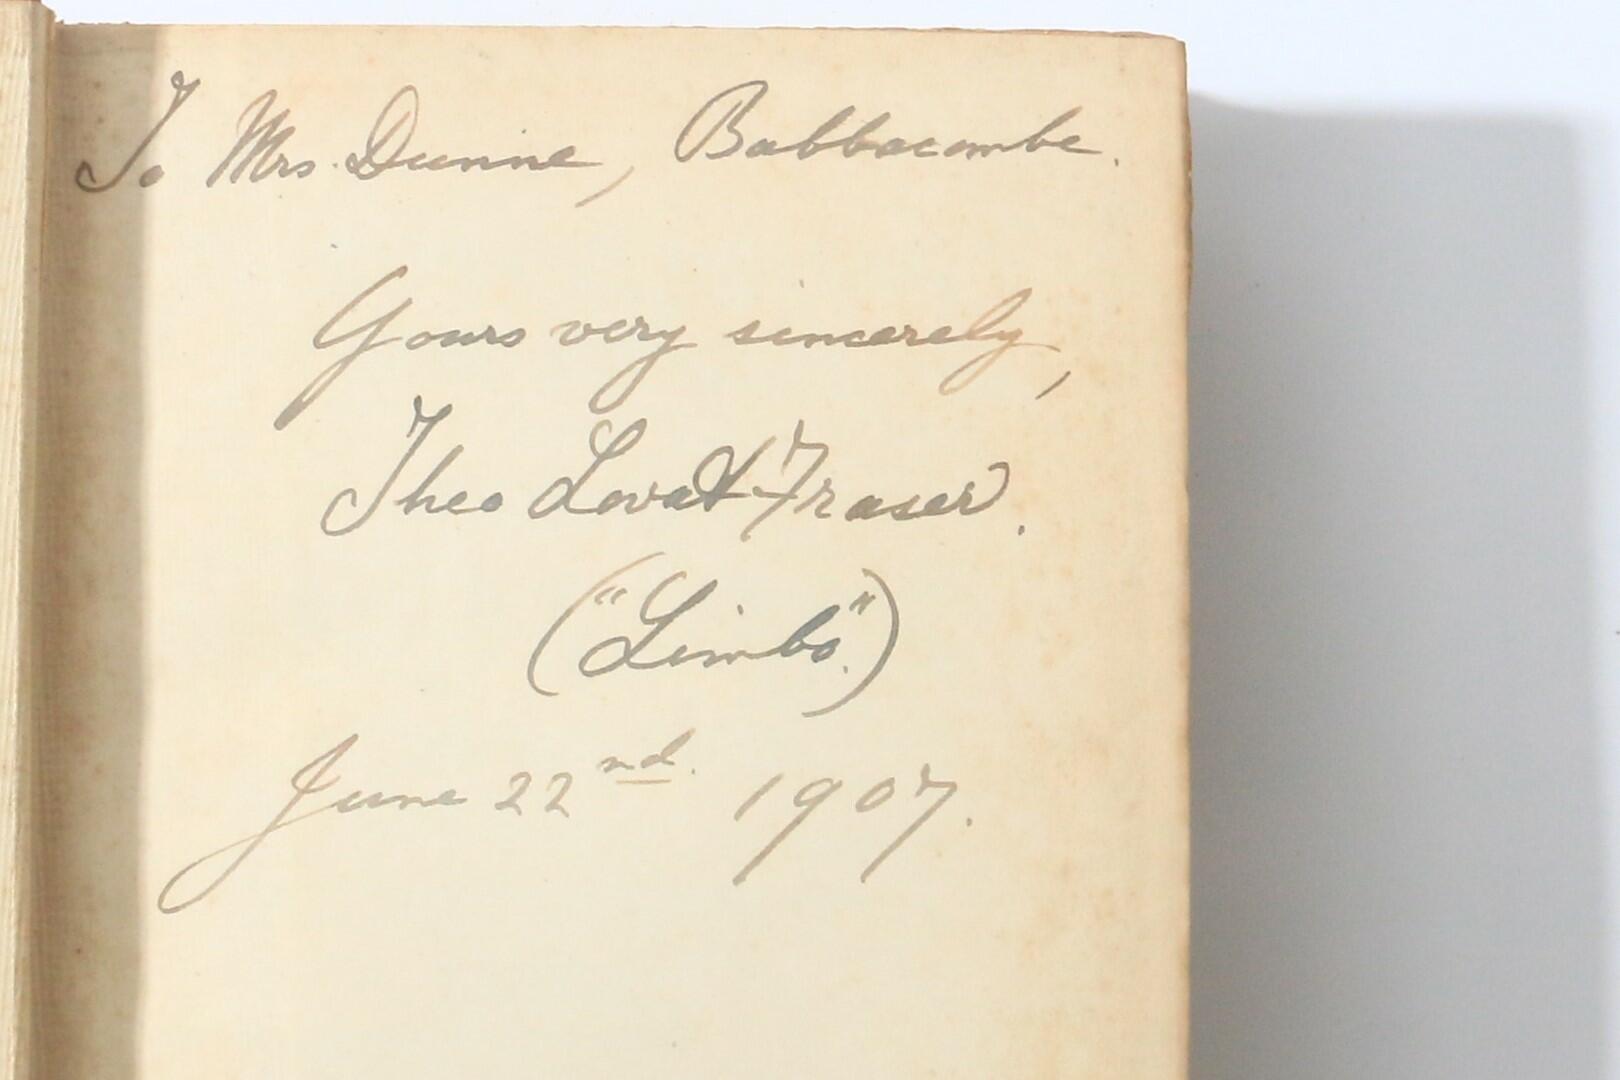 To Mrs. Dunne, Babbacombe.
Yours very sincerely,
Theo Lovat Fraser.
("Limbo".)
June 22nd. 1907.